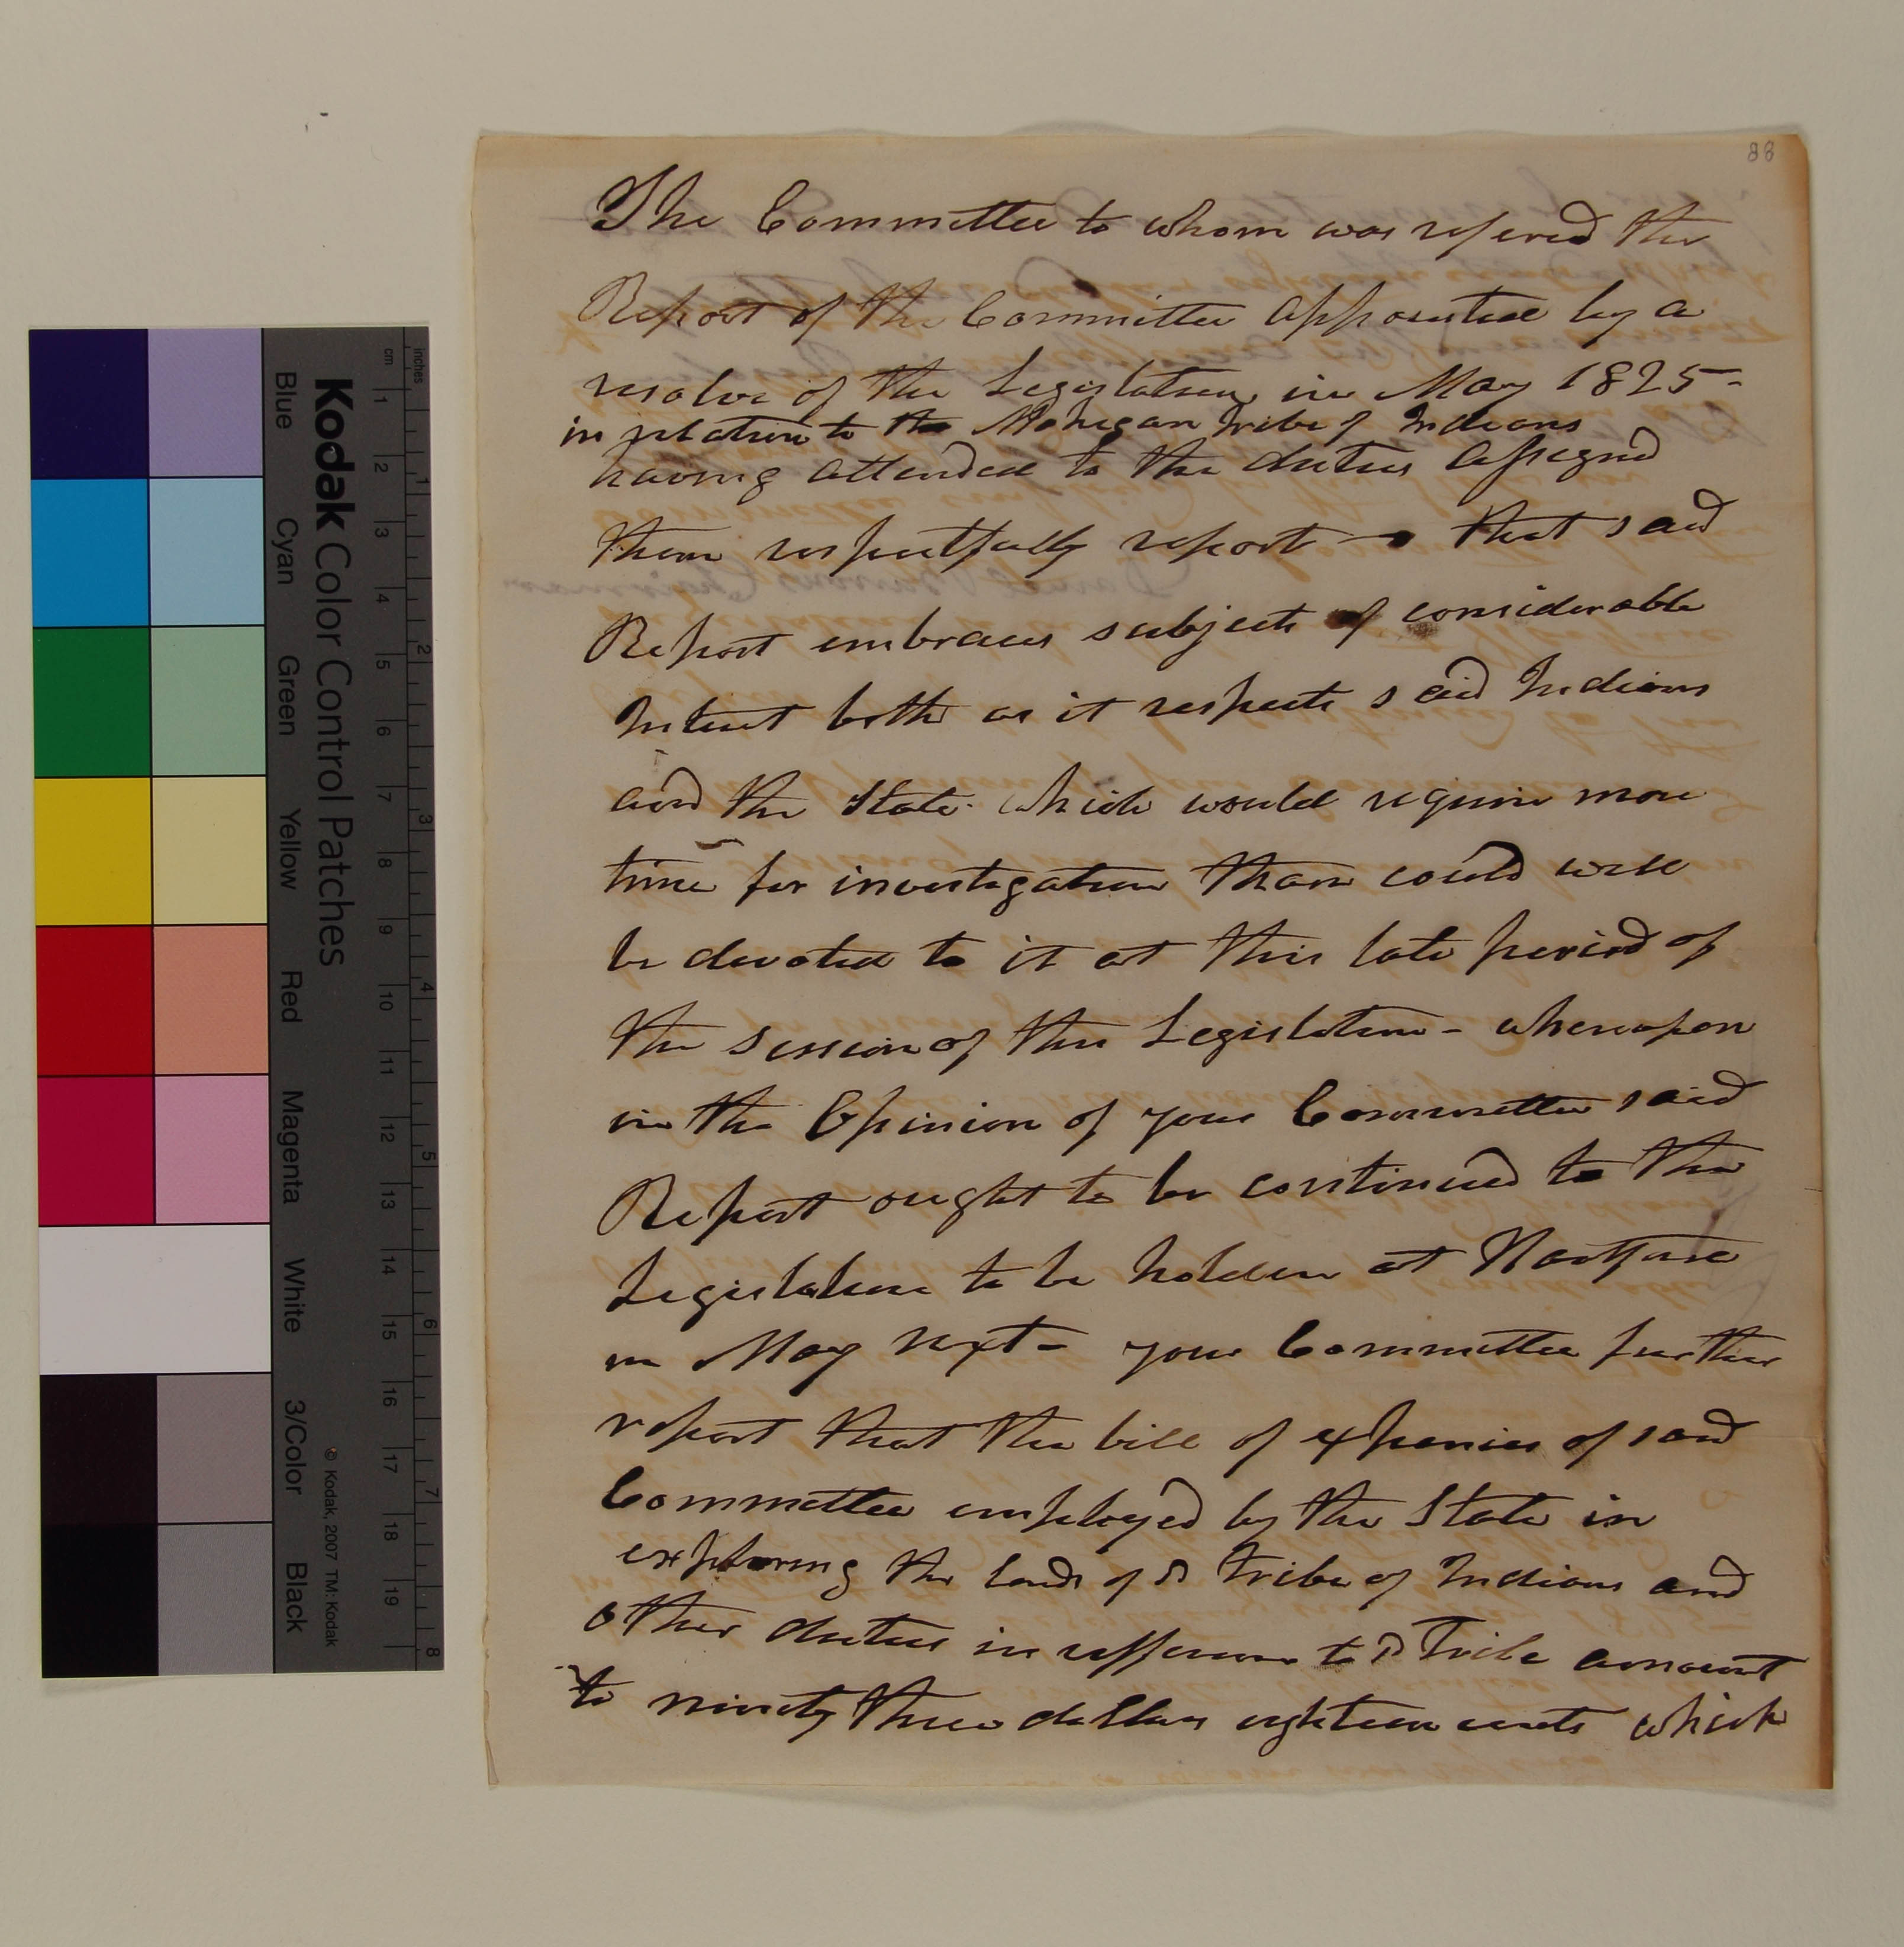 88
The Committee to whom was refered the
Report of the Committee appointed by a
resolve of the Legislature in May 1825-
in relation to the Mohegan tribe of Indians
having attended to the duties assigned
them respectfully report - that said
Report embraces subjects of considerable
Interest both as it respects said Indians
and the State which would require more
time for investigation than could well
be devoted to it at this late period of
the Session of this Legislature - whereupon
in the Opinion of your Committee said
Report ought to be continued to the
Legislature to be holden at Hartford
in May next - your Committee further
report that the bill of expenses of said
Committee employed by the State in
exploring the lands of sd tribe of Indians and
other duties in refference to sd Tribe amount
to ninety three dollars eighteen cents which
Kodak Color Control Patches
© Kodak, 2007 TM: Kodak
Blue Cyan Green Yellow Red Magenta White 3/Color Black
cm 1 2 3 4 5 6 7 8 9 10 11 12 13 14 15 16 17 18 19
inches 1 2 3 4 5 6 7 8